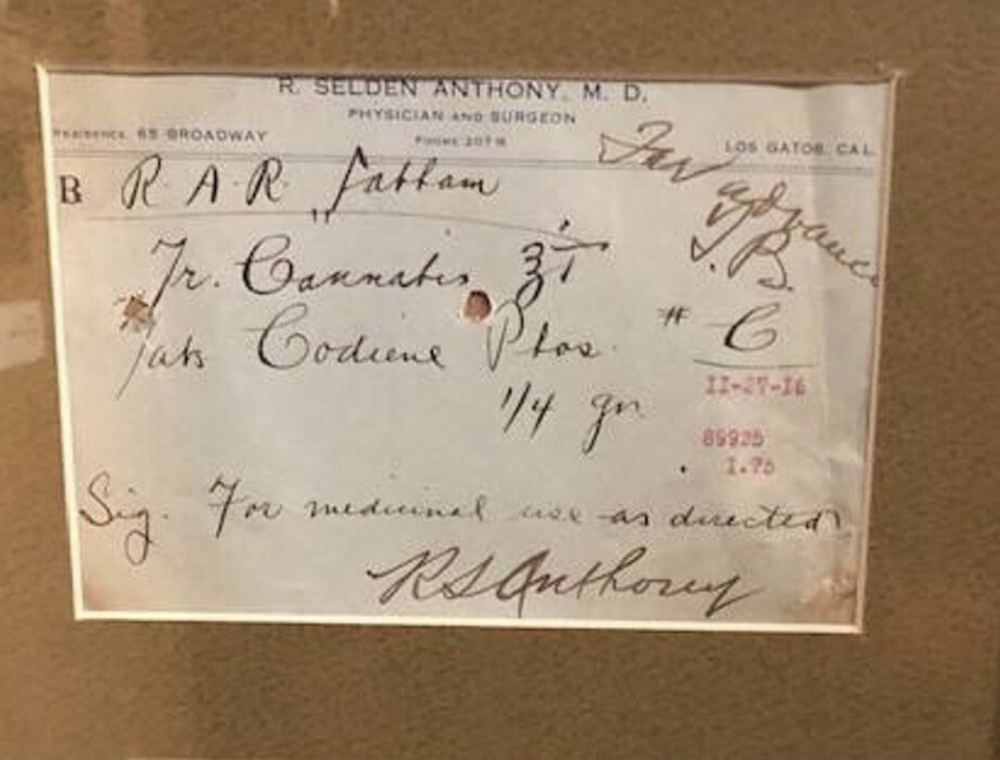 R. SELDEN ANTHONY, M. D.
PHYSICIAN AND SURGEON
RESIDENCE 65 BROADWAY
PHONE
LOS GATOS, CAL.
℞ R. A. R.
For advanced
T. B.
Tr. Cannabis ℨ i
Tabs Codiene Phos. # C
1/4 gr.
11-27-16
89925
1.75
Sig. For medicinal use as directed
RSAnthony